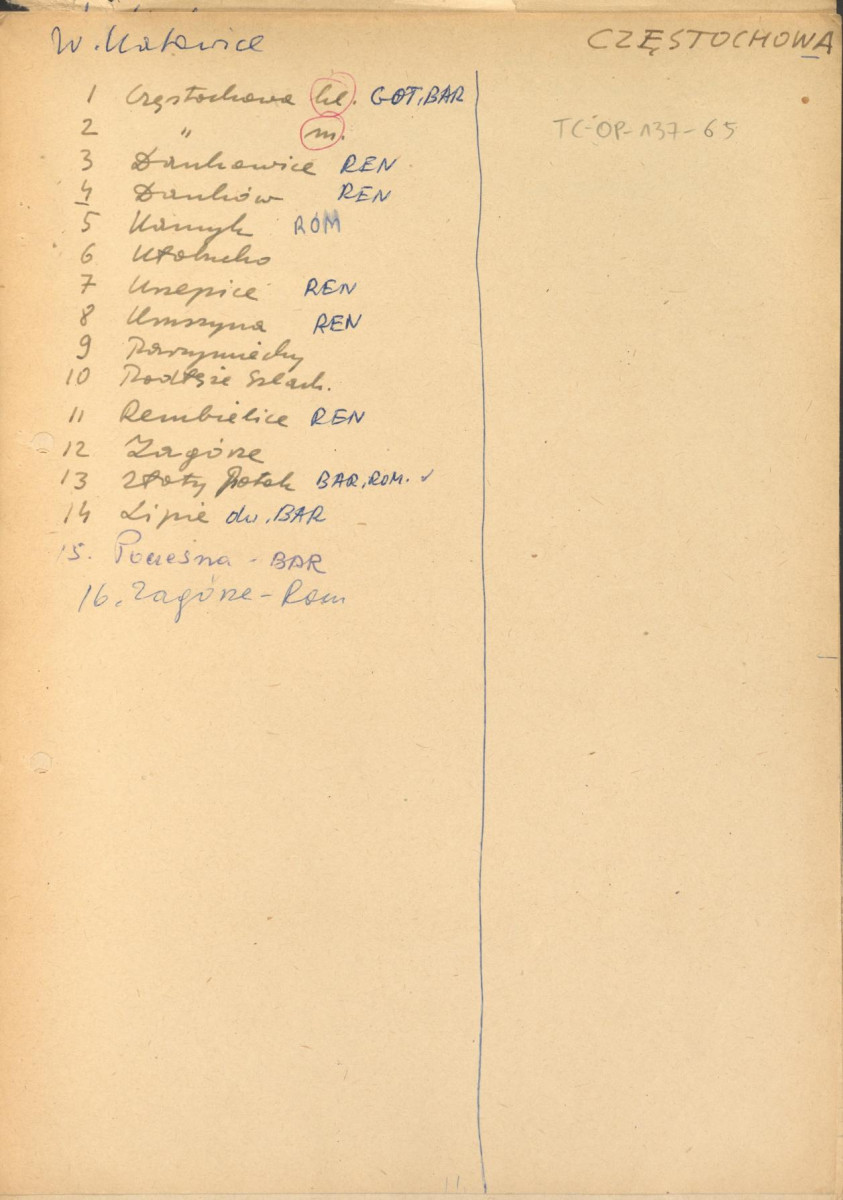 W. Katowice
CZĘSTOCHOWA
TC-OP-137-65
1 Częstochowa kl. GOT, BAR
2 " m.
3 Dankowice REN
4 Danków REN
5 Kamyk ROM
6 Kłobucko
7 Krzepice REN
8 Kruszyna REN
9 Parzymiechy
10 Podłęże Szlach.
11 Rembielice REN
12 Zagórze
13 Złoty Potok BAR, ROM. ✓
14 Lipie dw. BAR
15. Poczesna - BAR
16. Zagórze - Rom